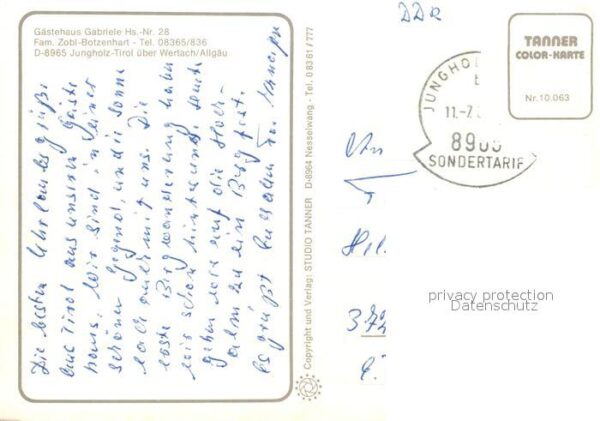 Gästehaus Gabriele Hs.-Nr. 28
Fam. Zobl-Botzenhart - Tel. 08365/836
D-8965 Jungholz-Tirol über Wertach/Allgäu
Die besten Urlaubsgrüße
aus Tirol aus unserm Gäste
haus. Wir sind in einer
schönen Gegend, und die Sonne
lacht auch mit uns. Die
erste Bergwanderung haben
wir schon hinter uns. heute
gehen wir auf die
alm zu ein Bergfest.
Es grüßt Fam.
Copyright und Verlag: STUDIO TANNER D-8964 Nesselwang - Tel. 0 83 61 / 777
DDR
TANNER
COLOR-KARTE
Nr. 10.063
JUNGHOL
11.-7.
SONDERTARIF
An
372
privacy protection
Datenschutz